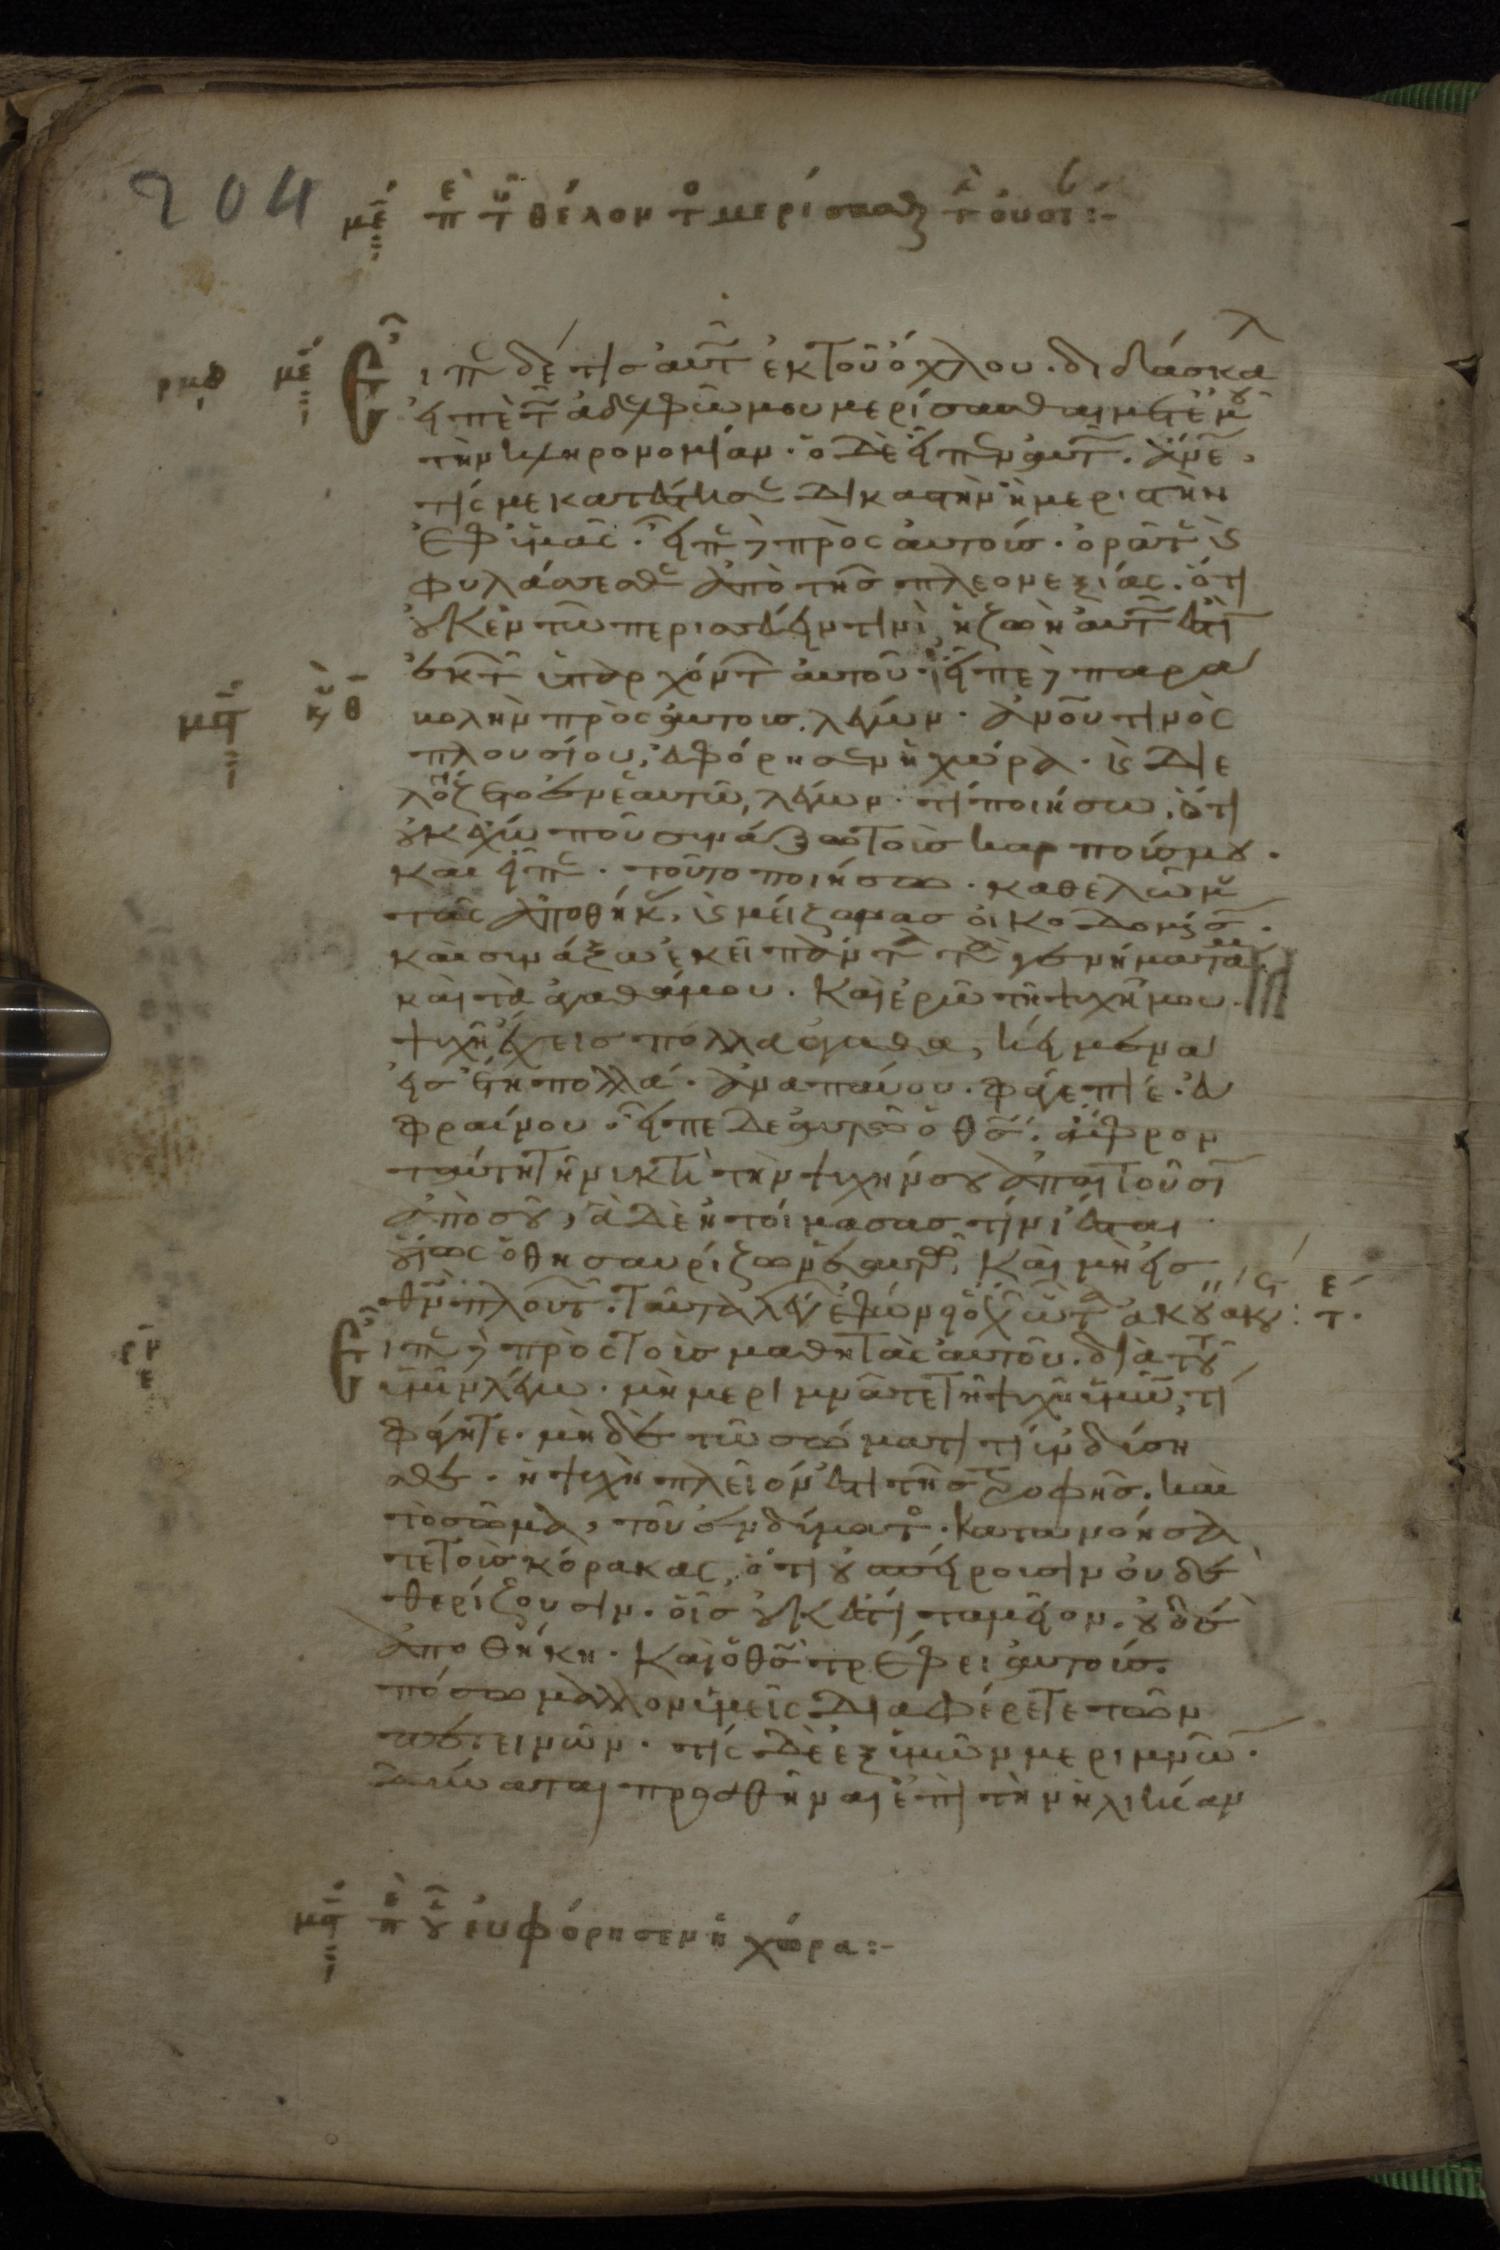 204
με πε τοῦ θέλοντος μερίσασθαι τὴν οὐσί:-
ρμθ με Εἶπε δέ τις αὐτῶ ἐκ τοῦ ὄχλου. διδάσκαλε
εἰπὲ τῶ ἀδελφῶ μου μερίσασθαι μετ' ἐμοῦ
τὴν κληρονομίαν. ὁ δὲ εἶπεν αὐτῶ. ἄνε,
τίς με κατέστησε δικαστὴν ἢ μεριστὴν
ἐφ' ὑμᾶς. εἶπε δὲ πρὸς αὐτούς. ὁρᾶτε καὶ
φυλάσσεσθε ἀπὸ τῆς πλεονεξίας. ὅτι
οὐκ ἐν τῶ περισσεύειν τινὶ ἡ ζωὴ αὐτοῦ ἐστὶ
ἐκ τῶν ὑπαρχόντων αὐτοῦ. εἶπε δὲ παρα
μς κυ θ βολὴν πρὸς αὐτοὺς λέγων. ἀνου τινὸς
πλουσίου, εὐφόρησεν ἡ χώρα. καὶ διε
λογίζετο ἐν ἑαυτῶ, λέγων. τί ποιήσω, ὅτι
οὐκ ἔχω ποῦ συνάξω τοὺς καρπούς μου.
καὶ εἶπε. τοῦτο ποιήσω. καθελῶ μου
τὰς ἀποθήκας, καὶ μείζονας οἰκοδομήσω.
καὶ συνάξω ἐκεῖ πάντα τὰ γενήματά μου
καὶ τὰ ἀγαθά μου. καὶ ἐρῶ τῆ ψυχῆ μου.
ψυχὴ ἔχεις πολλὰ ἀγαθὰ, κείμενα
εἰς ἔτη πολλά. ἀναπαύου. φάγε πίε. εὐ
φραίνου. εἶπε δὲ αὐτῶ ὁ θς. ἄφρον
ταύτη τῆ νυκτὶ τὴν ψυχήν σου ἀπαιτοῦσι
ἀπὸ σοῦ, ἃ δὲ ἡτοίμασας τίνι ἔσται
οὕτως ὁ θησαυρίζων ἑαυτῶ, καὶ μὴ εἰς
θν πλουτῶν. ταῦτα λέγων ἐφώνει ὁ ἔχων ὦτα ἀκούειν ἀκουέτω:
ρν Εἶπε δὲ πρὸς τοὺς μαθητὰς αὐτοῦ. διὰ τοῦτο
ὑμῖν λέγω. μὴ μεριμνᾶτε τῆ ψυχῆ ὑμῶν, τί
φάγητε. μηδὲ τῶ σώματι τί ἐνδύση
σθε. ἡ ψυχὴ πλεῖόν ἐστι τῆς τροφῆς. καὶ
τὸ σῶμα, τοῦ ἐνδύματος. κατανοήσα
τε τοὺς κόρακας, ὅτι οὐ σπείρουσιν οὐδὲ
θερίζουσιν. οἷς οὐκ ἔστι ταμεῖον. οὐδὲ
ἀποθήκη. καὶ ὁ θς τρέφει αὐτούς.
πόσω μᾶλλον ὑμεῖς διαφέρετε τῶν
πετεινῶν. τίς δὲ ἐξ ὑμῶν μεριμνῶν
δύναται προσθῆναι ἐπὶ τὴν ἡλικίαν
μς πε οὗ εὐφόρησεν ἡ χώρα:-